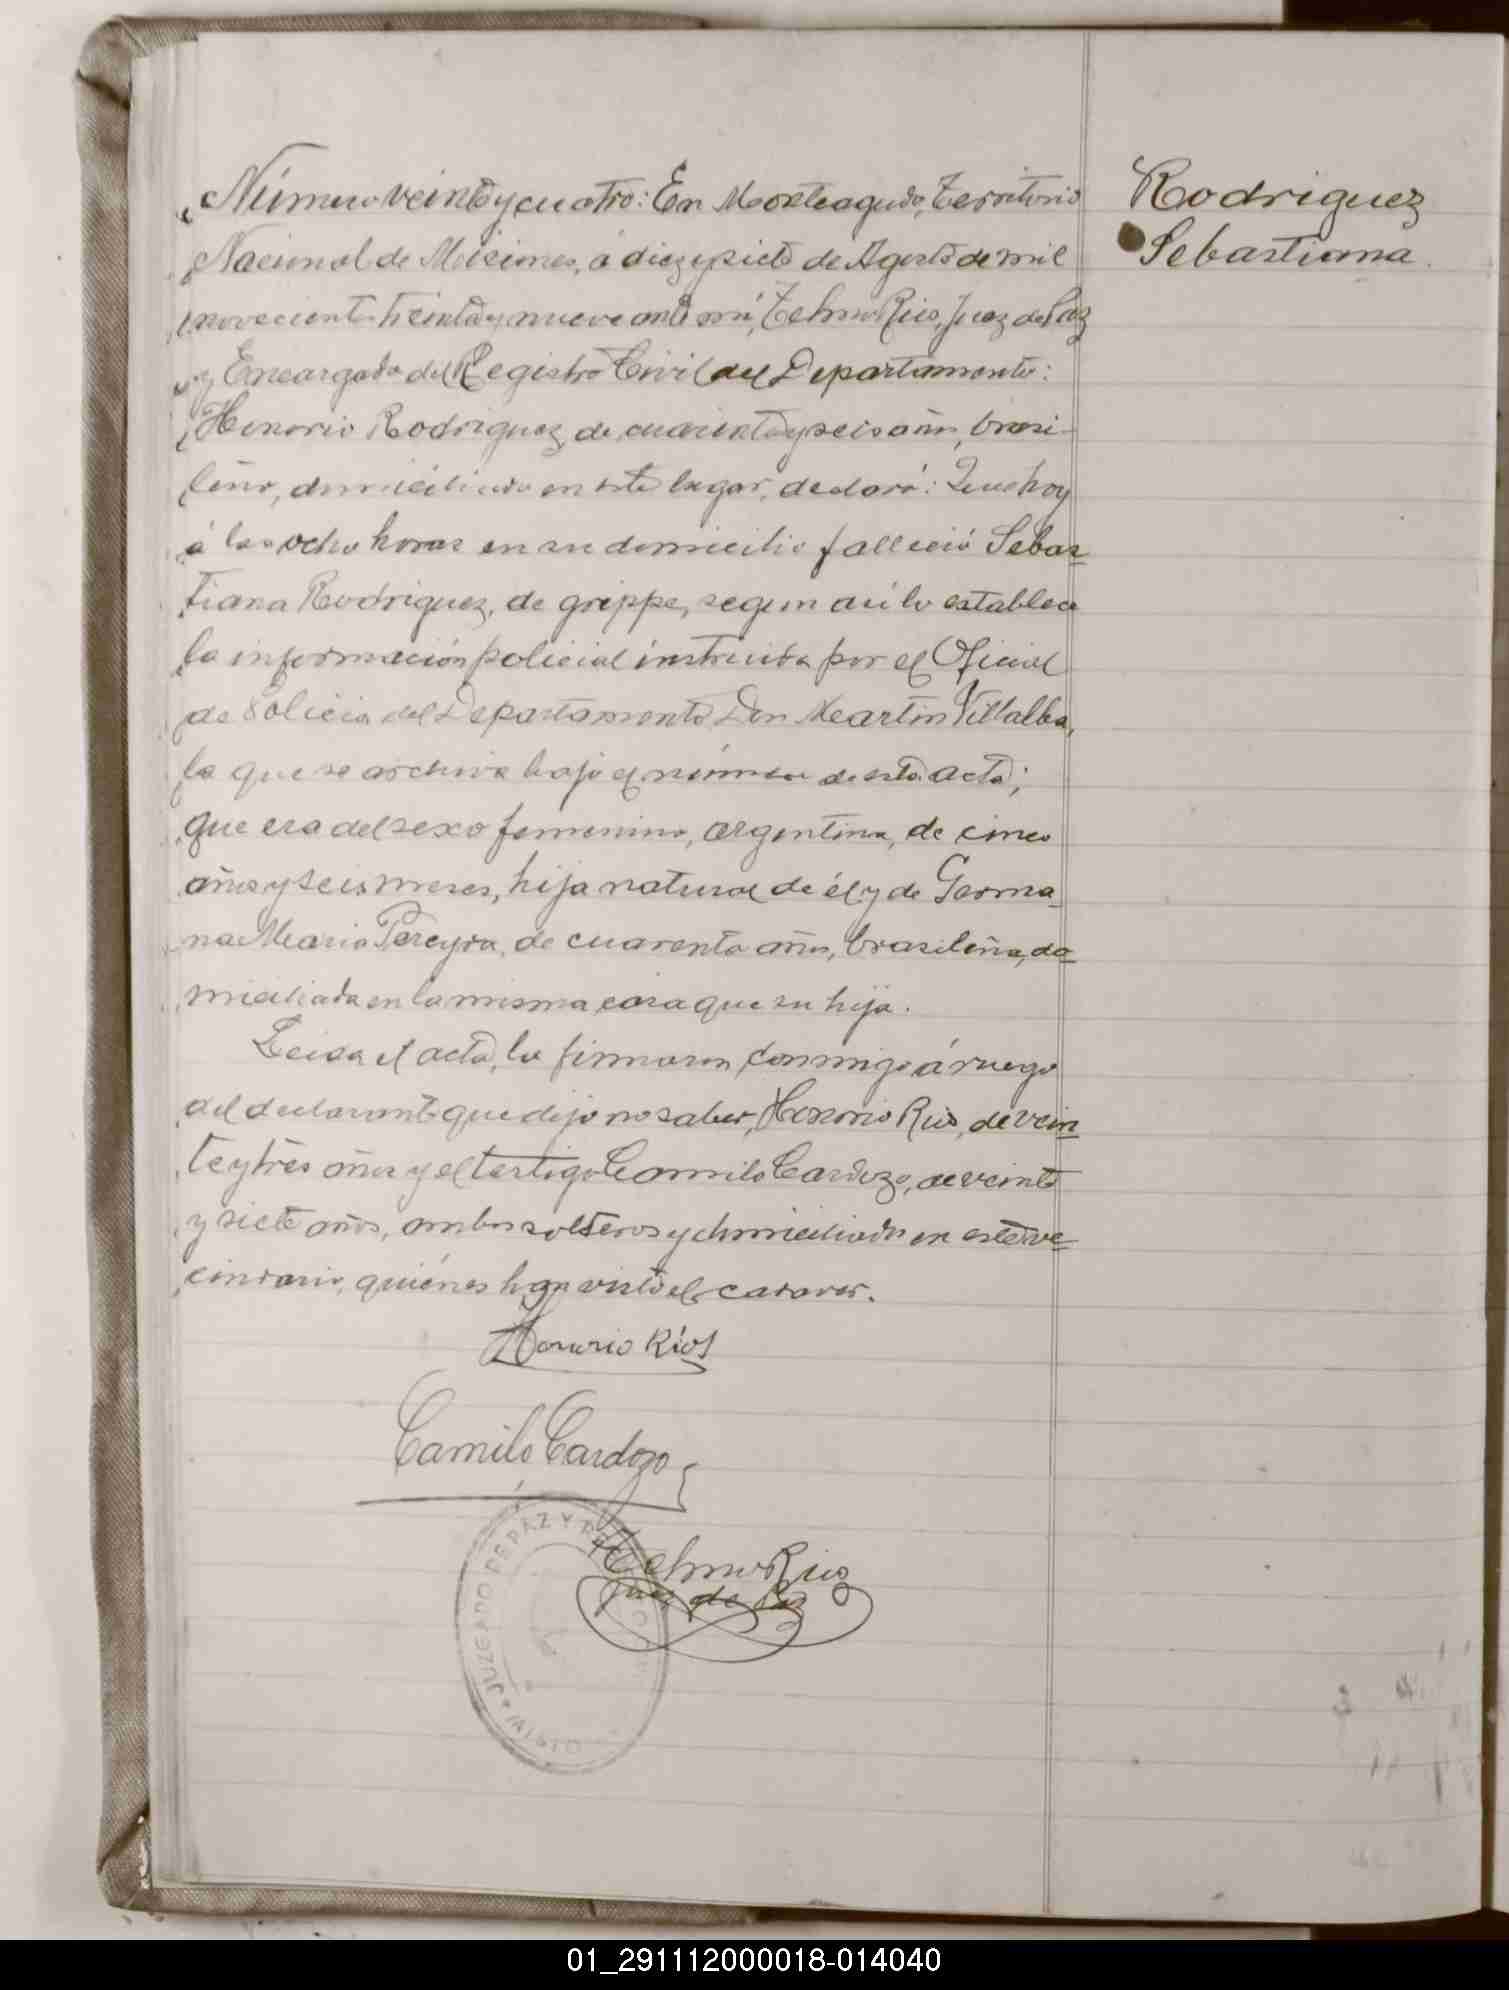 Número veinte y cuatro: En Monteagudo, Territorio
Nacional de Misiones, á diez y siete de Agosto de mil
novecientos treinta y nueve ante mí, Telmo Rios, Juez de Paz
y Encargado del Registro Civil del Departamento:
Honorio Rodriguez, de cuarenta y seis años, brasi-
leño, domiciliado en este lugar, declaró: Que hoy
á las ocho horas en su domicilio falleció Sebas-
tiana Rodriguez, de grippe, segun así lo establece
la información policial instruida por el Oficial
de Policia del Departamento Don Martin Villalba,
la que se archiva bajo el número de esta acta;
que era del sexo femenino, argentina, de cinco
años y seis meses, hija natural de él y de Germa-
na Maria Pereyra, de cuarenta años, brasileña, do-
miciliada en la misma casa que su hija.
Leida el acta, la firmaron conmigo á ruego
del declarante que dijo no saber, Honorio Rios, de vein-
te y tres años y el testigo Camilo Cardozo, de veinte
y siete años, ambos solteros y domiciliados en este ve-
cindario, quiénes han visto el cadaver.
Honorio Ríos
Camilo Cardozo
Telmo Rios
Juez de Paz
JUZGADO DE PAZ Y
Rodriguez
Sebastiana.
01_291112000018-014040